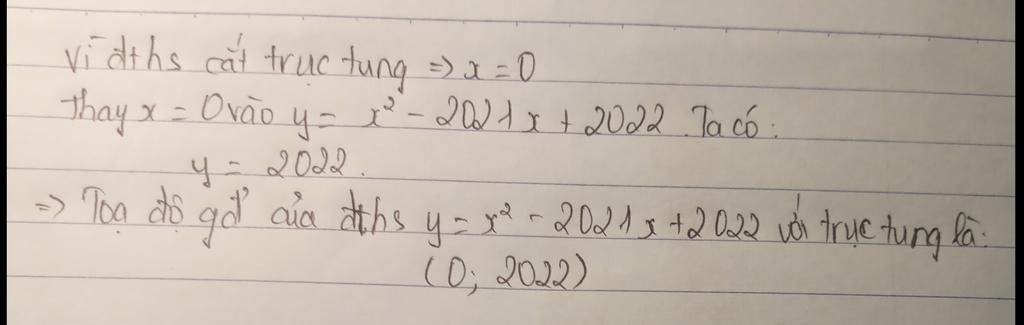 Vì đths cắt trục tung => x = 0
thay x = 0 vào y = x² - 2021x + 2022. Ta có:
y = 2022.
=> Toạ độ gđ của đths y = x² - 2021x + 2022 với trục tung là:
(0; 2022)